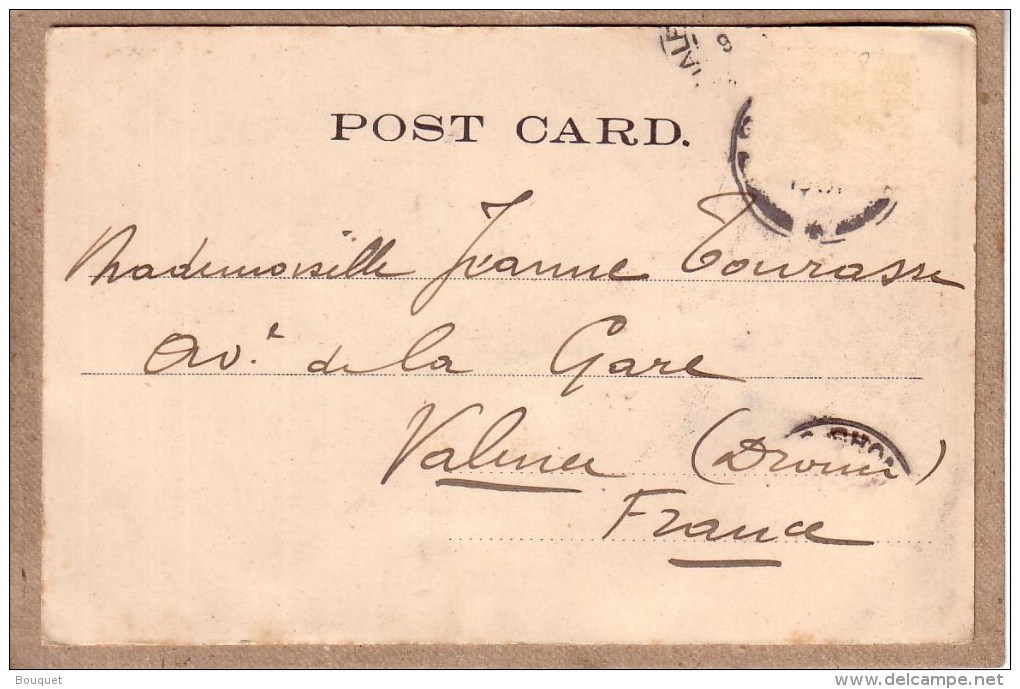 VALE
8
POST CARD.
Mademoiselle Jeanne Tourasse
Av.e de la Gare
Valence (Drome)
France
Bouquet
delcampe.net